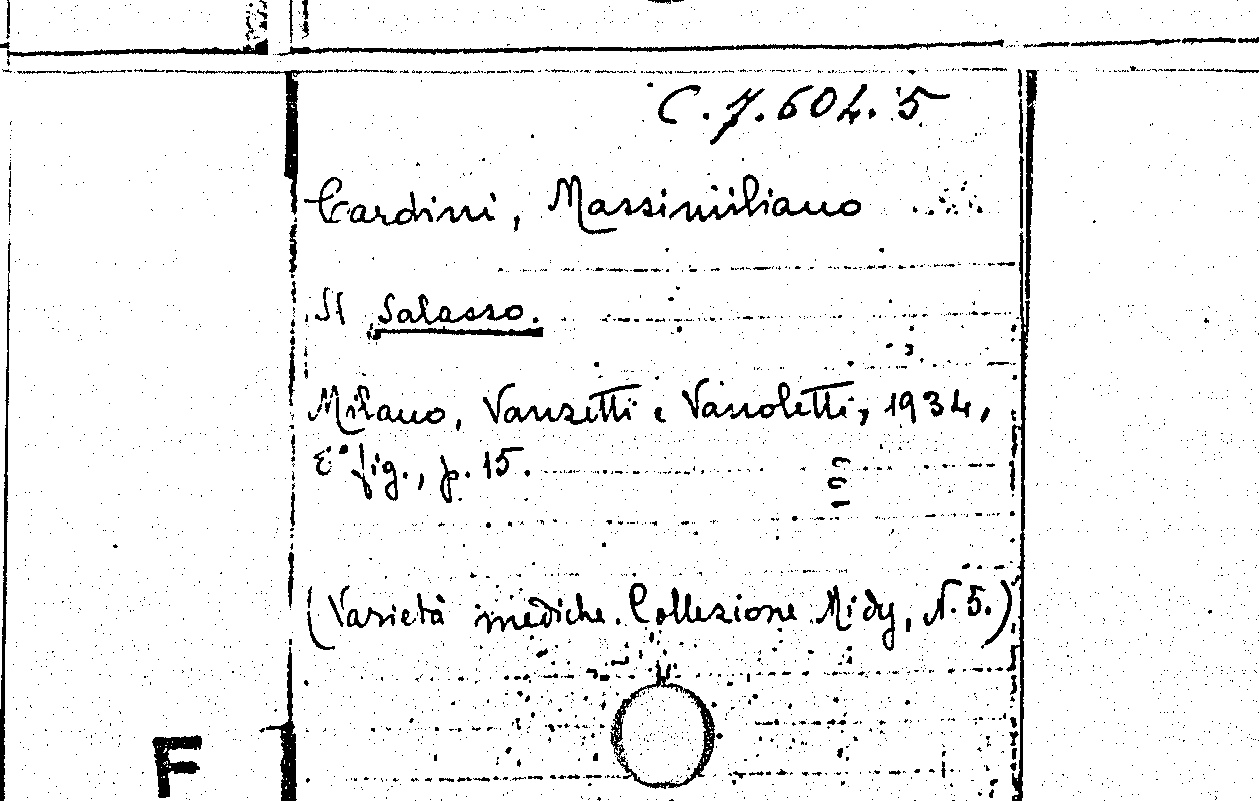 C.7.604.5
Cardini, Massimiliano
Il Salasso.
Milano, Vanzetti e Vanoletti, 1934,
8° fig., p. 15.
(Varietà mediche. Collezione Midy, N. 5.)
F